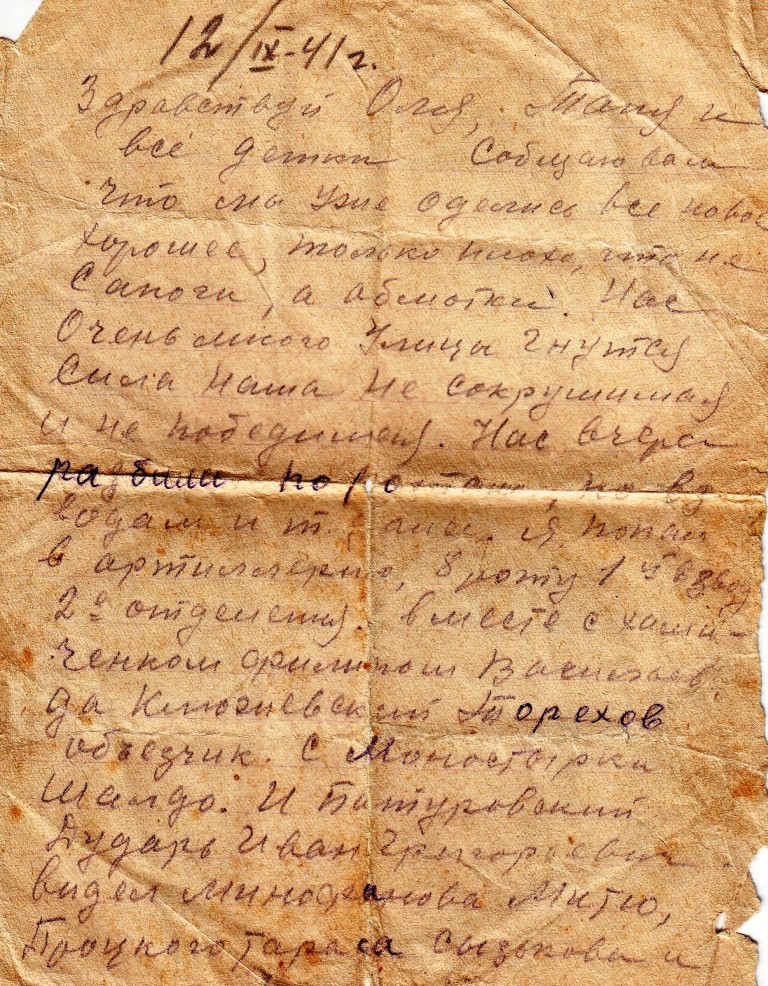 12/IX-41 г.
Здравствуй Оля, Таня и
все детки Собщаю вам
что мы уже оделись все новое
хорошее, только плохо, что не
Сапоги, а обмотки. Нас
Очень много Улицы гнутся
Сила наша не сокрушимая
и не победимая. Нас вчера
разбили по ротам, по вз
водам и т. дали. Я попал
в артиллерию, 8 роту 1й взвод
2е отделения. вместе с
ченком филипом
да Ключиевский Торехов
объезчик. С Моностырка
Шалдо. И Батуровский
Дударь Иван Григорьевич.
видел Минофанова Митю,
Троцкого тараса Сызькова и